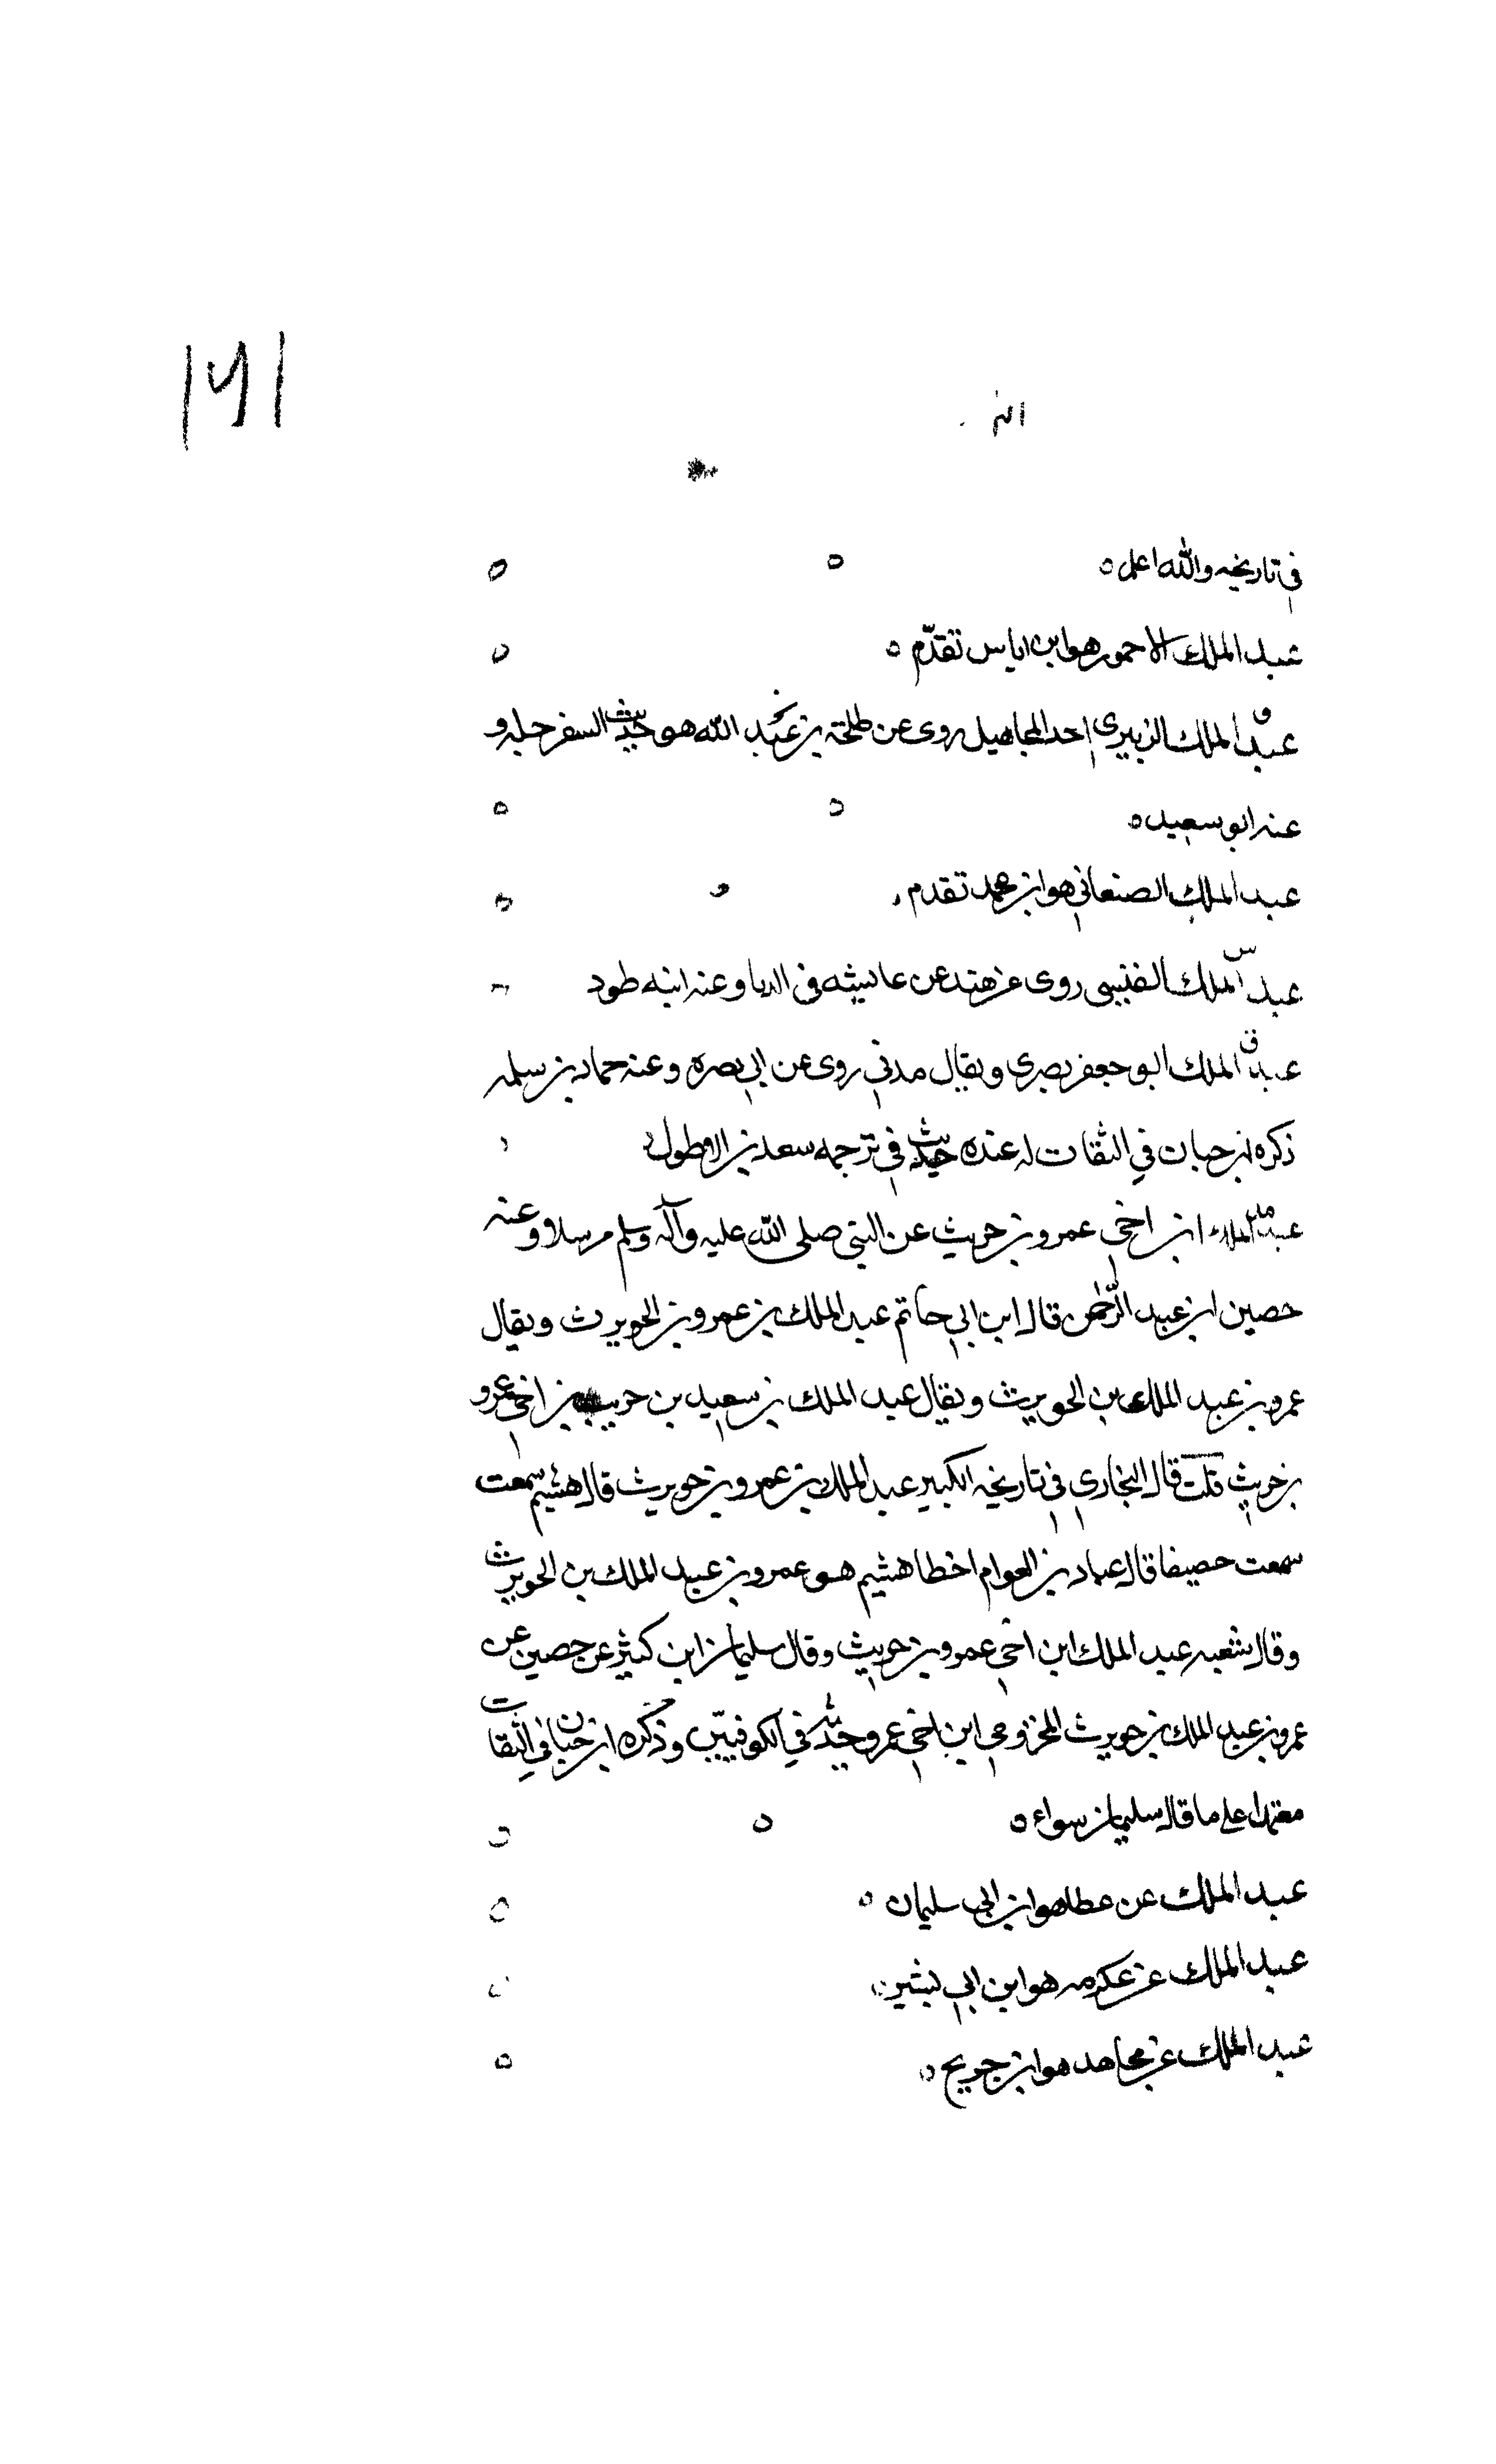 ١٦١
في تاريخه والله اعلم ه
عبد الملك الاحمور هو ابن اياس تقدّم ه
ق
عبد الملك الزبيري احد المجاهيل روى عن طلحة بن عبد الله هو حديث السفرجله و
عنه ابو سعيد ه
عبد الملك الصنعاني هو ابن محمد تقدم
س
عبد الملك القيسي روى عن هند عن عايشه في الدبا وعنه ابنه طود
ق
عبد الملك ابو جعفر بصري ويقال مدني روى عن ابي نصره وعنه حماد بن سلمه
ذكره ابن حبان في الثقات له عنده حديث في ترجمه سعد بن الاطول
عبد الملك ابن اخي عمرو بن حريث عن النبي صلى الله عليه وآله وسلم مرسلا وعنه
حصين ابن عبد الرحمن قال ابن ابي حاتم عبد الملك بن عمرو بن الحويرث ويقال
عمرو بن عبد الملك بن الحويرث ويقال عبد الملك بن سعيد بن حريث بن اخي عمرو
بن حريث قلت قال البخاري في تاريخه الكبير عبد الملك بن عمرو بن حويرث قال هشيم سمعت
سمعت حصينا قال عباد بن العوام اخطا هشيم هو عمرو بن عبد الملك بن الحويرث
وقال شعبه عبد الملك ابن اخي عمرو بن حريث وقال سليمان ابن كثير عن حصين عن
عمرو بن عبد الملك بن حويرث المخزومي ابن اخي عمرو حديثه في الكوفيين وذكره ابن حبان في الثقات
معتمدا على ما قال سليمان سواء ه
عبد الملك عن عطا هو ابن ابي سليمان ه
عبد الملك عن عكرمه هو ابن ابي بشير
عبد الملك عن مجاهد هو ابن جريج ه